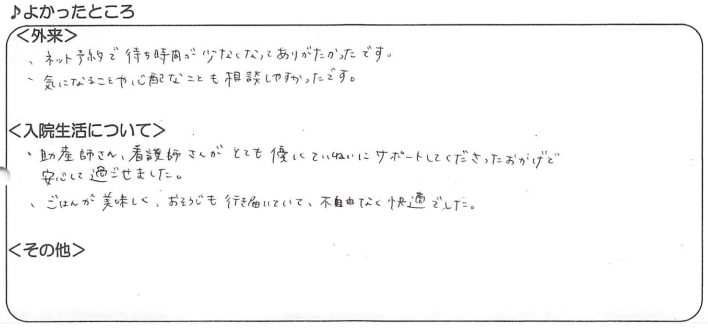 ♪よかったところ
<外来>
、ネット予約で待ち時間が少なくなってありがたかったです。
・気になることや心配なことも相談しやすかったです。
<入院生活について>
・助産師さん、看護師さんがとても優しくていねいにサポートしてくださったおかげで
安心して過ごせました。
、ごはんが美味しく、おそうじも行き届いていて、不自由なく快適でした。
<その他>